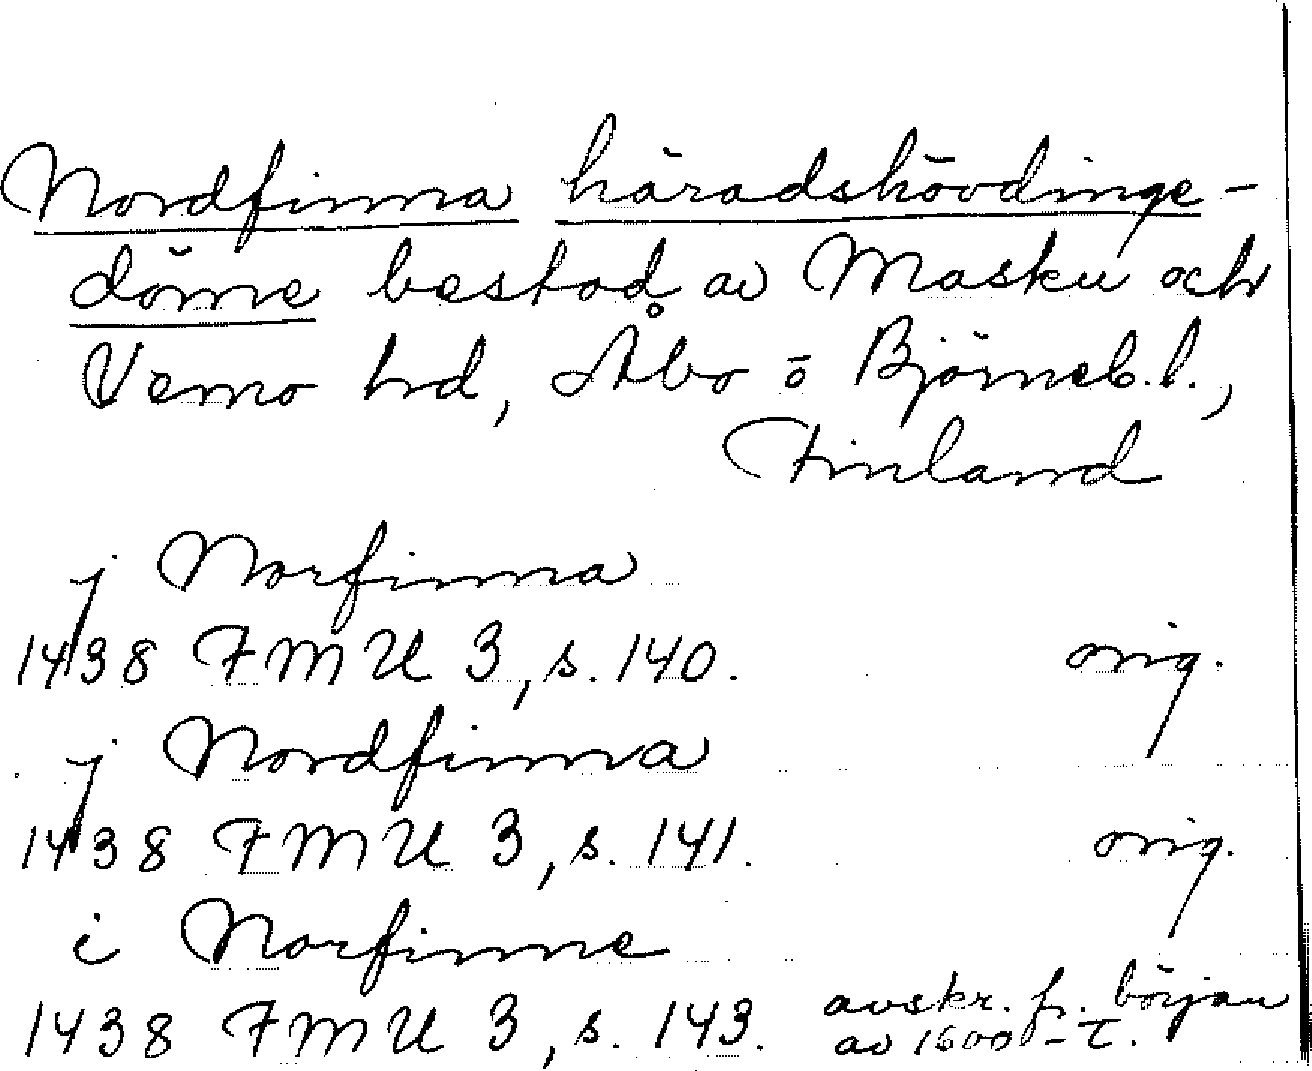 Nordfinna häradshövdinge-
döme bestod av Masku och
Vemo hrd, Åbo o Björneb. l.,
Finland
j Norfinna
1438 FMU 3, s. 140. orig.
j Nordfinna
1438 FMU 3, s. 141. orig.
i Norfinne
1438 FMU 3, s. 143. avskr. fr. början
av 1600-t.